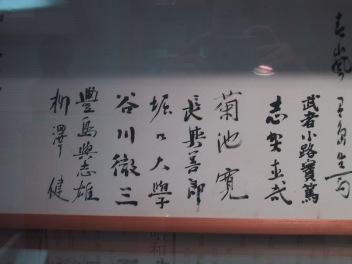 武者小路實篤
志賀直哉
菊池寛
長與善郎
堀口大學
谷川徹三
豐島與志雄
柳澤健